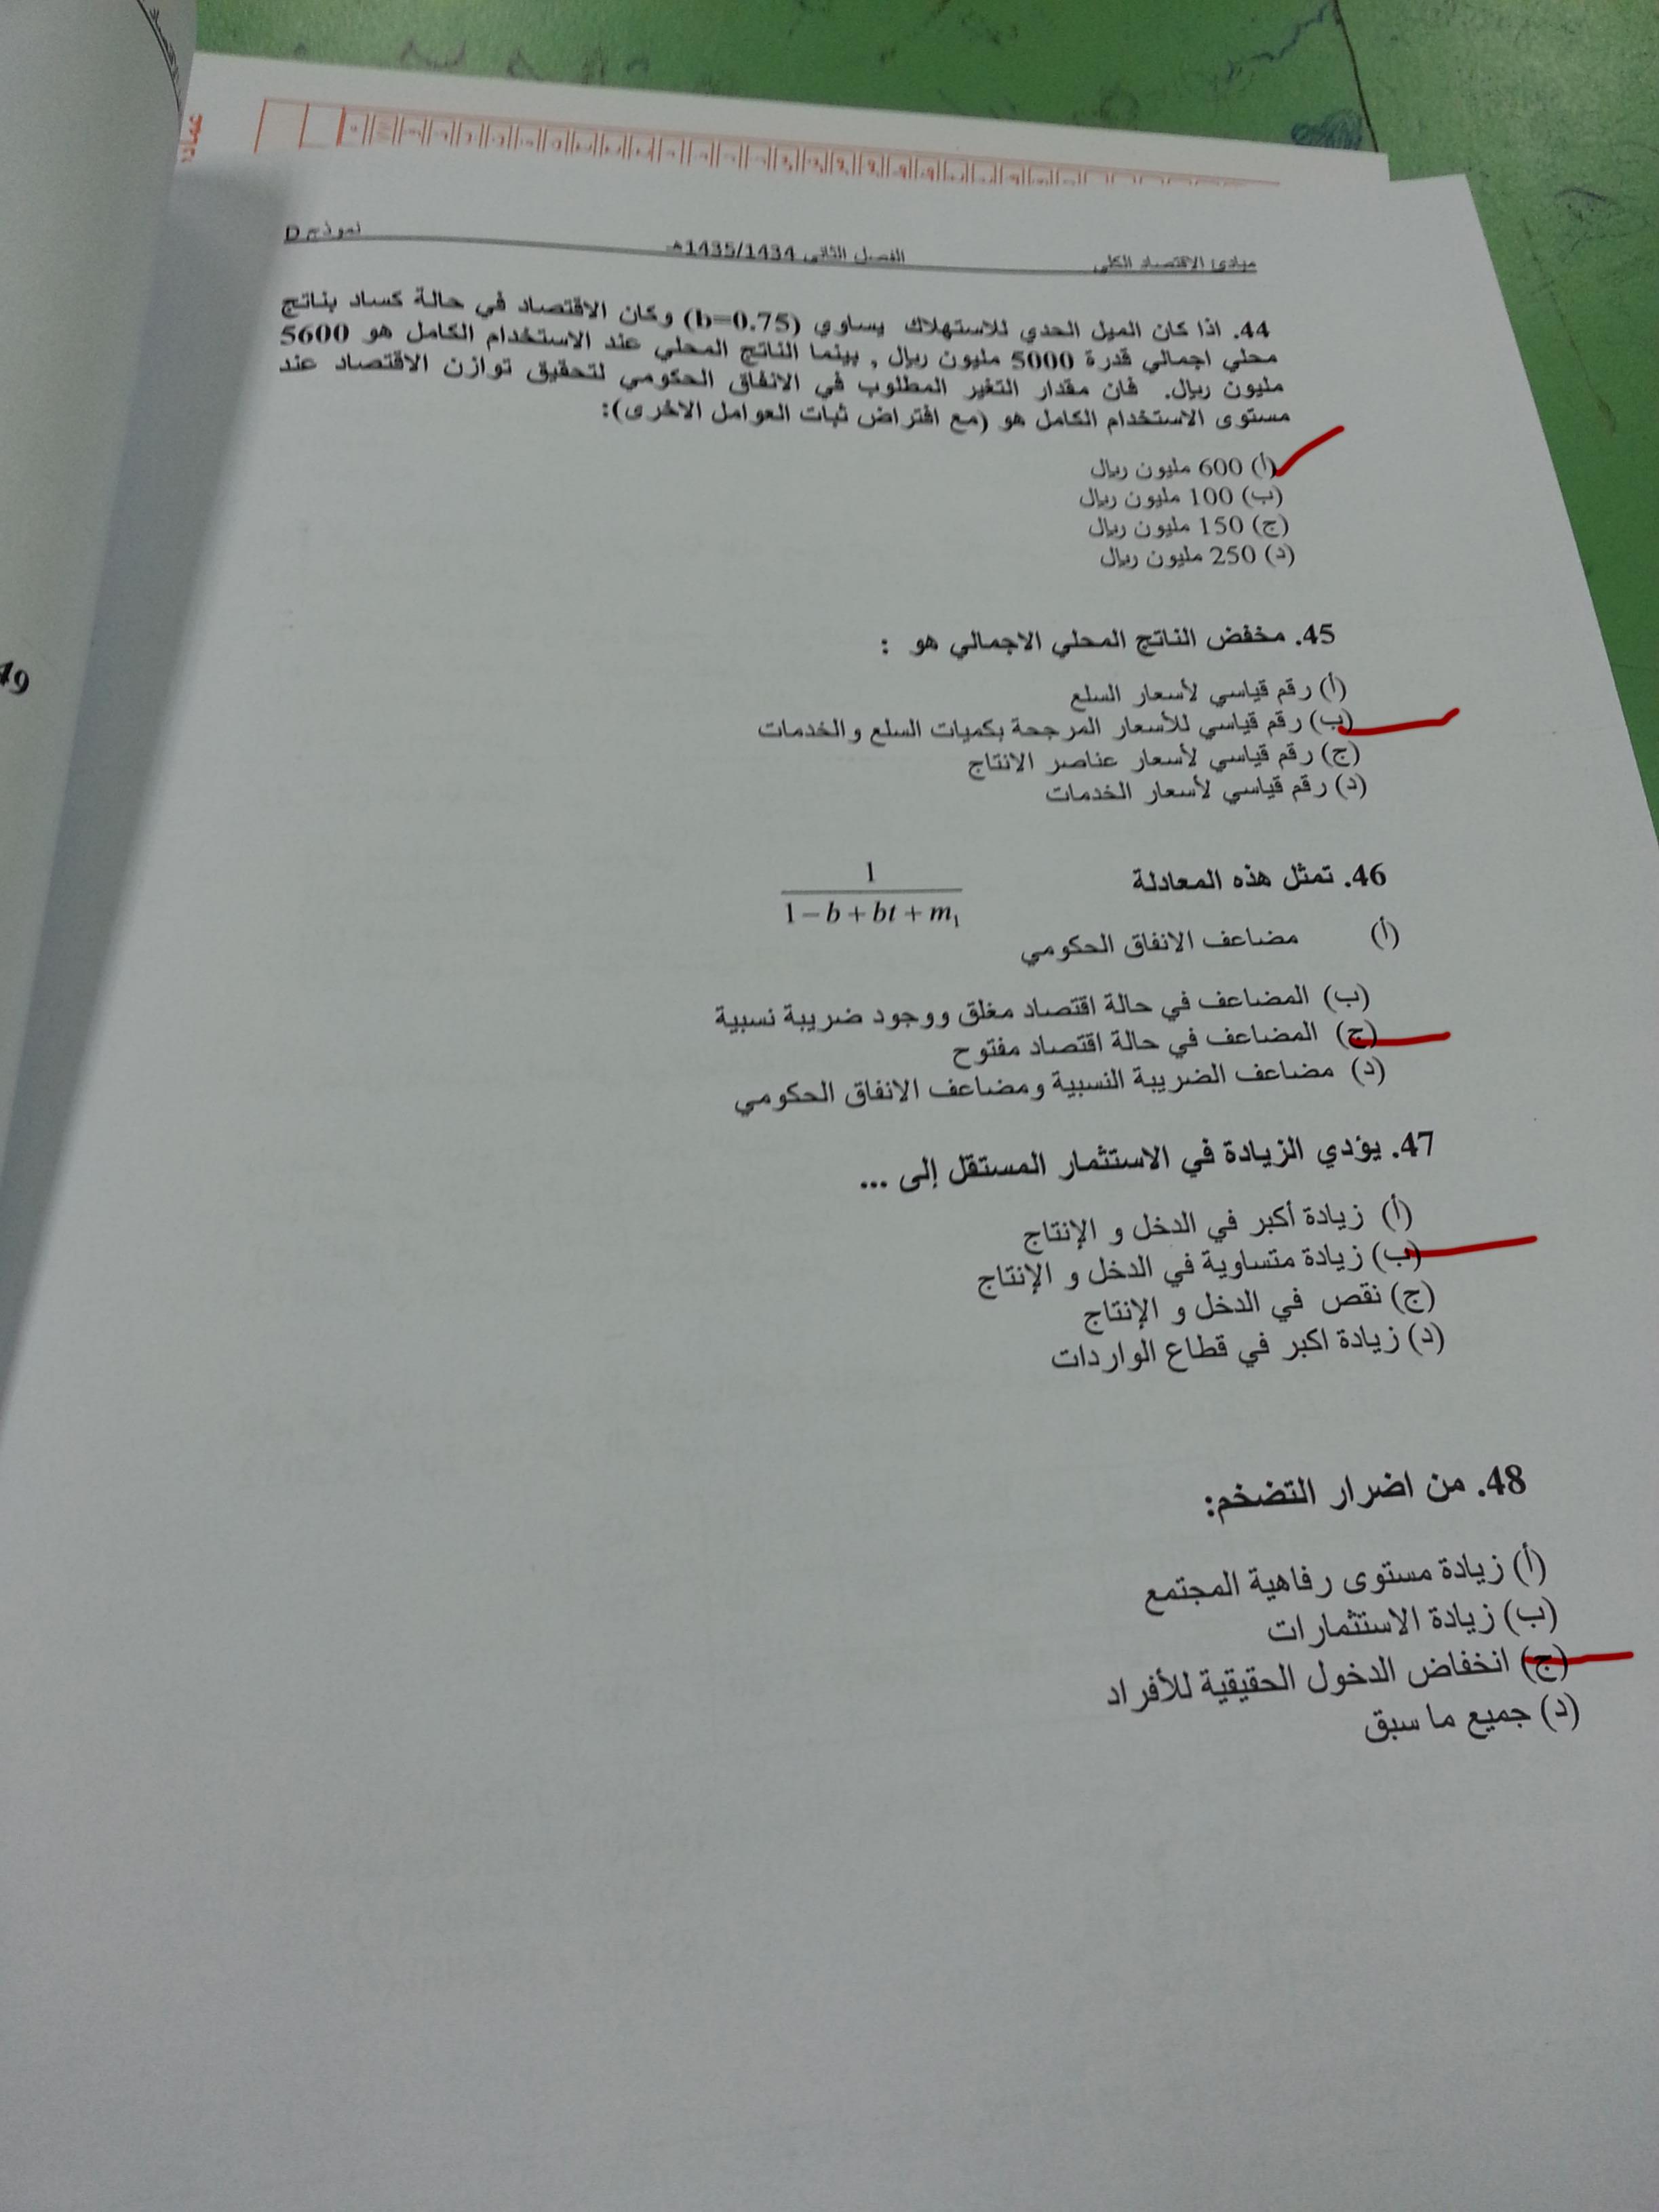 مبادئ الاقتصاد الكلي الفصل الثاني 1435/1434هـ نموذج D
44. اذا كان الميل الحدي للاستهلاك يساوي (b=0.75) وكان الاقتصاد في حالة كساد بناتج
محلي اجمالي قدرة 5000 مليون ريال , بينما الناتج المحلي عند الاستخدام الكامل هو 5600
مليون ريال. فان مقدار التغير المطلوب في الانفاق الحكومي لتحقيق توازن الاقتصاد عند
مستوى الاستخدام الكامل هو (مع افتراض ثبات العوامل الاخرى):
(أ) 600 مليون ريال
(ب) 100 مليون ريال
(ج) 150 مليون ريال
(د) 250 مليون ريال
45. مخفض الناتج المحلي الاجمالي هو :
(أ) رقم قياسي لأسعار السلع
(ب) رقم قياسي للأسعار المرجحة بكميات السلع والخدمات
(ج) رقم قياسي لأسعار عناصر الانتاج
(د) رقم قياسي لأسعار الخدمات
46. تمثل هذه المعادلة
1
1 − b + bt + m₁
(أ) مضاعف الانفاق الحكومي
(ب) المضاعف في حالة اقتصاد مغلق ووجود ضريبة نسبية
(ج) المضاعف في حالة اقتصاد مفتوح
(د) مضاعف الضريبة النسبية ومضاعف الانفاق الحكومي
47. يؤدي الزيادة في الاستثمار المستقل إلى ...
(أ) زيادة أكبر في الدخل و الإنتاج
(ب) زيادة متساوية في الدخل و الإنتاج
(ج) نقص في الدخل و الإنتاج
(د) زيادة اكبر في قطاع الواردات
48. من اضرار التضخم:
(أ) زيادة مستوى رفاهية المجتمع
(ب) زيادة الاستثمارات
(ج) انخفاض الدخول الحقيقية للأفراد
(د) جميع ما سبق